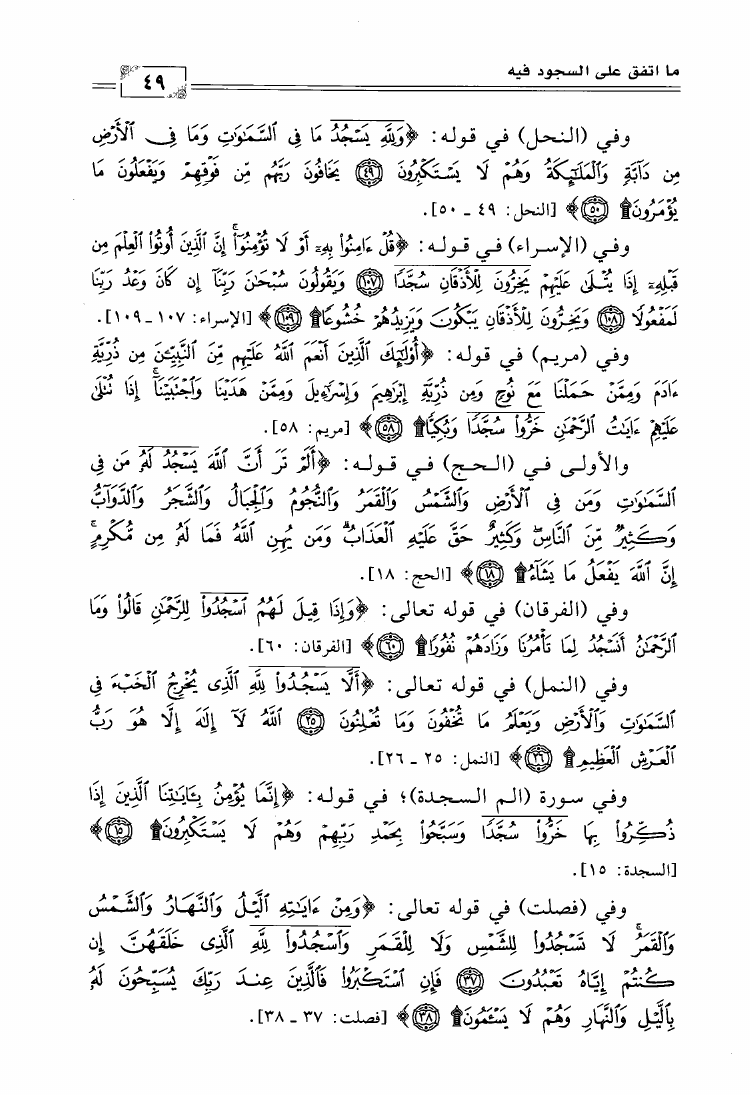 ما اتفق على السجود فيه
٤٩
وفي (النحل) في قوله: ﴿وَلِلَّهِ يَسْجُدُ مَا فِي ٱلسَّمَٰوَٰتِ وَمَا فِي ٱلْأَرْضِ
مِن دَآبَّةٍ وَٱلْمَلَٰٓئِكَةُ وَهُمْ لَا يَسْتَكْبِرُونَ ٤٩ يَخَافُونَ رَبَّهُم مِّن فَوْقِهِمْ وَيَفْعَلُونَ مَا
يُؤْمَرُونَ۩ ٥٠﴾ [النحل: ٤٩ ـ ٥٠].
وفي (الإسراء) في قوله: ﴿قُلْ ءَامِنُوا۟ بِهِۦٓ أَوْ لَا تُؤْمِنُوٓا۟ۚ إِنَّ ٱلَّذِينَ أُوتُوا۟ ٱلْعِلْمَ مِن
قَبْلِهِۦٓ إِذَا يُتْلَىٰ عَلَيْهِمْ يَخِرُّونَ لِلْأَذْقَانِ سُجَّدًا ١٠٧ وَيَقُولُونَ سُبْحَٰنَ رَبِّنَآ إِن كَانَ وَعْدُ رَبِّنَا
لَمَفْعُولًا ١٠٨ وَيَخِرُّونَ لِلْأَذْقَانِ يَبْكُونَ وَيَزِيدُهُمْ خُشُوعًا۩ ١٠٩﴾ [الإسراء: ١٠٧ ـ ١٠٩].
وفي (مريم) في قوله: ﴿أُو۟لَٰٓئِكَ ٱلَّذِينَ أَنْعَمَ ٱللَّهُ عَلَيْهِم مِّنَ ٱلنَّبِيِّـۧنَ مِن ذُرِّيَّةِ
ءَادَمَ وَمِمَّنْ حَمَلْنَا مَعَ نُوحٍ وَمِن ذُرِّيَّةِ إِبْرَٰهِيمَ وَإِسْرَٰٓءِيلَ وَمِمَّنْ هَدَيْنَا وَٱجْتَبَيْنَآۚ إِذَا تُتْلَىٰ
عَلَيْهِمْ ءَايَٰتُ ٱلرَّحْمَٰنِ خَرُّوا۟ سُجَّدًا وَبُكِيًّا۩ ٥٨﴾ [مريم: ٥٨].
والأولى في (الحج) في قوله: ﴿أَلَمْ تَرَ أَنَّ ٱللَّهَ يَسْجُدُ لَهُۥ مَن فِي
ٱلسَّمَٰوَٰتِ وَمَن فِي ٱلْأَرْضِ وَٱلشَّمْسُ وَٱلْقَمَرُ وَٱلنُّجُومُ وَٱلْجِبَالُ وَٱلشَّجَرُ وَٱلدَّوَآبُّ
وَكَثِيرٌ مِّنَ ٱلنَّاسِۖ وَكَثِيرٌ حَقَّ عَلَيْهِ ٱلْعَذَابُۗ وَمَن يُهِنِ ٱللَّهُ فَمَا لَهُۥ مِن مُّكْرِمٍۚ
إِنَّ ٱللَّهَ يَفْعَلُ مَا يَشَآءُ۩ ١٨﴾ [الحج: ١٨].
وفي (الفرقان) في قوله تعالى: ﴿وَإِذَا قِيلَ لَهُمُ ٱسْجُدُوا۟ لِلرَّحْمَٰنِ قَالُوا۟ وَمَا
ٱلرَّحْمَٰنُ أَنَسْجُدُ لِمَا تَأْمُرُنَا وَزَادَهُمْ نُفُورًا۩ ٦٠﴾ [الفرقان: ٦٠].
وفي (النمل) في قوله تعالى: ﴿أَلَّا يَسْجُدُوا۟ لِلَّهِ ٱلَّذِي يُخْرِجُ ٱلْخَبْءَ فِي
ٱلسَّمَٰوَٰتِ وَٱلْأَرْضِ وَيَعْلَمُ مَا تُخْفُونَ وَمَا تُعْلِنُونَ ٢٥ ٱللَّهُ لَآ إِلَٰهَ إِلَّا هُوَ رَبُّ
ٱلْعَرْشِ ٱلْعَظِيمِ۩ ٢٦﴾ [النمل: ٢٥ ـ ٢٦].
وفي سورة (الم السجدة)؛ في قوله: ﴿إِنَّمَا يُؤْمِنُ بِـَٔايَٰتِنَا ٱلَّذِينَ إِذَا
ذُكِّرُوا۟ بِهَا خَرُّوا۟ سُجَّدًا وَسَبَّحُوا۟ بِحَمْدِ رَبِّهِمْ وَهُمْ لَا يَسْتَكْبِرُونَ۩ ١٥﴾
[السجدة: ١٥].
وفي (فصلت) في قوله تعالى: ﴿وَمِنْ ءَايَٰتِهِ ٱلَّيْلُ وَٱلنَّهَارُ وَٱلشَّمْسُ
وَٱلْقَمَرُۚ لَا تَسْجُدُوا۟ لِلشَّمْسِ وَلَا لِلْقَمَرِ وَٱسْجُدُوا۟ لِلَّهِ ٱلَّذِي خَلَقَهُنَّ إِن
كُنتُمْ إِيَّاهُ تَعْبُدُونَ ٣٧ فَإِنِ ٱسْتَكْبَرُوا۟ فَٱلَّذِينَ عِندَ رَبِّكَ يُسَبِّحُونَ لَهُۥ
بِٱلَّيْلِ وَٱلنَّهَارِ وَهُمْ لَا يَسْـَٔمُونَ۩ ٣٨﴾ [فصلت: ٣٧ ـ ٣٨].